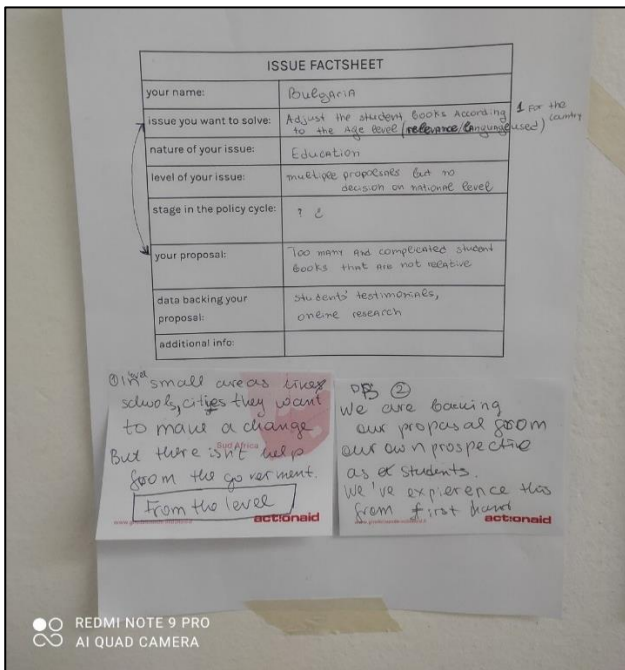 ISSUE FACTSHEET
your name:
Bulgaria
issue you want to solve:
Adjust the student books According
to the Age level (relevance/language used)
1 For the
country
nature of your issue:
Education
level of your issue:
multiple proposals but no
decision on national level
stage in the policy cycle:
? ¿
your proposal:
Too many and complicated student
books that are not relative
data backing your
proposal:
students' testimonies,
online research
additional info:
① In small areas like
schools, cities they want
to make a change
But there isn't help
from the goverment.
From the level
Sud Africa
act!onaid
②
We are backing
our proposal from
our own prospective
as students.
We've expierence this
from first hand
act!onaid
REDMI NOTE 9 PRO
AI QUAD CAMERA